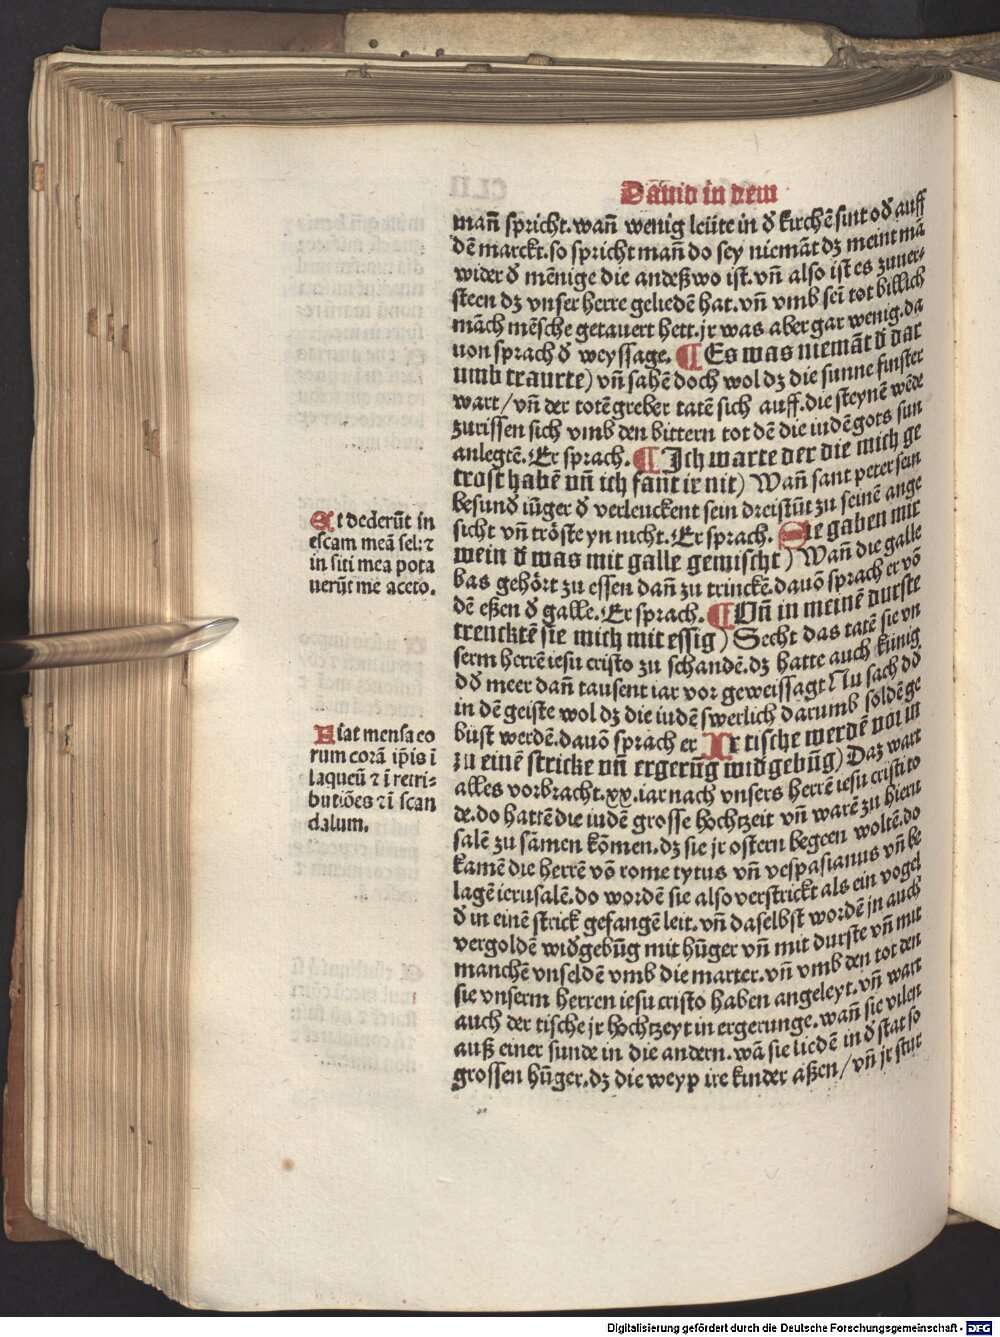 Dauid in dem
mañ spricht. wañ wenig leüte in d̕ kirchē sint od̕ auff
dē marckt. so spricht mañ do sey niemāt dz meint mā
wider d̕ mēnige die andeßwo ist. vñ also ist es zuuer-
steen dz vnser herre geliedē hat. vñ vmb sei̅ tot billich
māch mēsche getauert hett. jr was aber gar wenig. da
uon sprach d̕ weyssage. ¶ Es was niemāt d̕ dar
umb traurte) vñ sahē doch wol dz die sunne finster
wart / vñ der totē greber tatē sich auff. die steynē wēde
zurissen sich vmb den bittern tot dē die iudē gots sun
anlegtē. Er sprach. ¶ Ich warte der die mich ge
trost habē vñ ich fant ir nit) Wañ sant peter sein
besund̕ iūger d̕ verleuckent sein dreistūt zu seinē ange
sicht vñ tröste yn nicht. Er sprach. Sie gaben mir
wein d̕ was mit galle gemischt) Wañ die galle
bas gehört zu essen dañ zu trinckē. dauō sprach er vō
dē eßen d̕ galle. Er sprach. ¶ Vñ in meinē durste
trencktē sie mich mit essig) Secht das tatē sie vn
serm herrē iesu cristo zu schandē. dz hatte auch kūnig
dd̕ meer dañ tausent iar vor geweissagt Nu sach dd̕
in dē geiste wol dz die iudē swerlich darumb soldē ge
büst werdē. dauō sprach er Ir tische werdē vor in
zu einē stricke vñ ergerūg wid̕gebūg) Daz wart
alles vorbracht. xx. iar nach vnsers herrē iesu cristi to
de. do hattē die iudē grosse hochtzeit vñ warē zu hieru
salē zu sāmen kōmen. dz sie jr ostern begeen woltē. do
kamē die herrē vō rome tytus vñ vespasianus vñ be
lagē ierusalē. do wordē sie also verstrickt als ein vogel
d̕ in einē strick gefangē leit. vñ daselbst wordē jn auch
vergoldē wid̕gebūg mit hūger vñ mit durste vñ mit
manchē vnseldē vmb die marter. vñ vmb den tot den
sie vnserm herren iesu cristo haben angeleyt. vñ wart
auch der tische jr hochtzeyt in ergerunge. wañ sie vilen
auß einer sunde in die andern. wā sie liedē in d̕ stat so
grossen hūger. dz die weyp ire kinder aßen / vñ jr
Et dederūt in
escam meā fel: ⁊
in siti mea pota
uerūt me aceto.
Fiat mensa eo
rum corā ip̄is ī
laqueū ⁊ ī retri-
butiōes ⁊ ī scan
dalum.
Digitalisierung gefördert durch die Deutsche Forschungsgemeinschaft - DFG